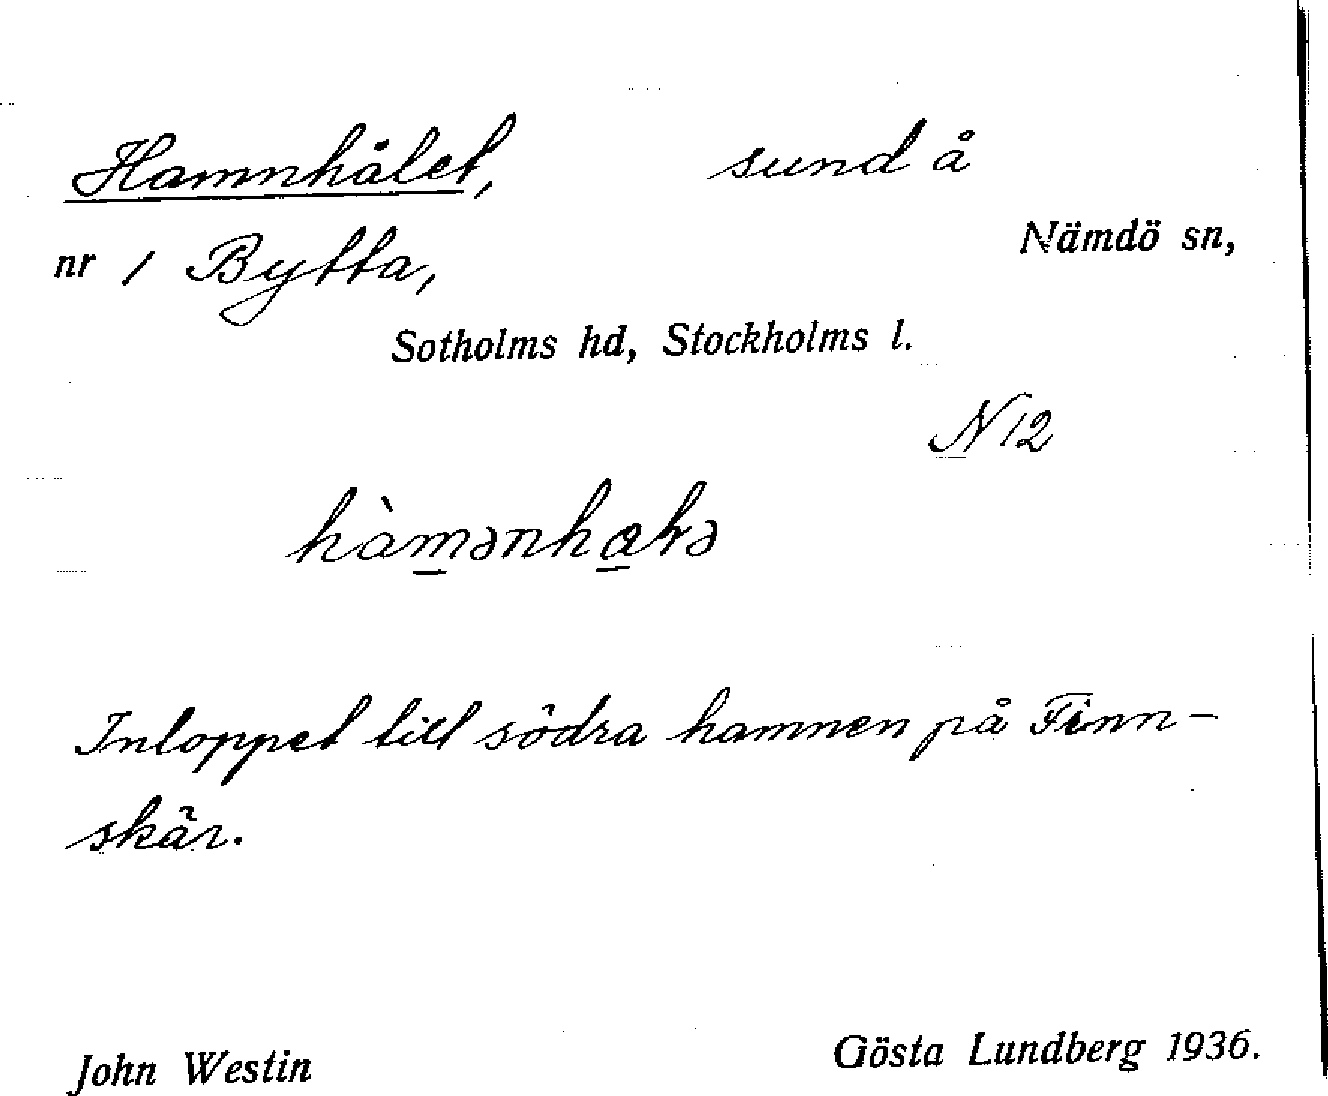 Hamnhålet, sund å
nr 1 Bytta, Nämdö sn,
Sotholms hd, Stockholms l.
N 12
Inloppet till södra hamnen på Finn-
skär.
John Westin Gösta Lundberg 1936.